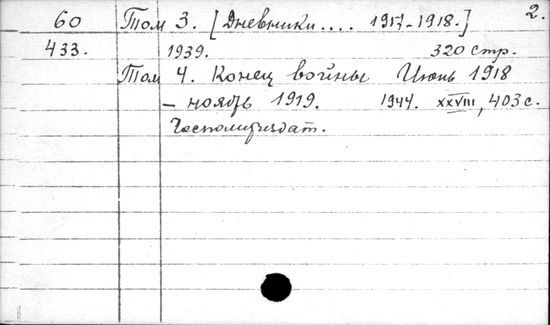 2.
60 Том 3. [Дневники.... 1917-1918.]
433. 1939. 320 стр.
Том 4. Конец войны Июнь 1918
– ноябрь 1919. 1944. XXVIII, 403 с.
Госполитиздат.